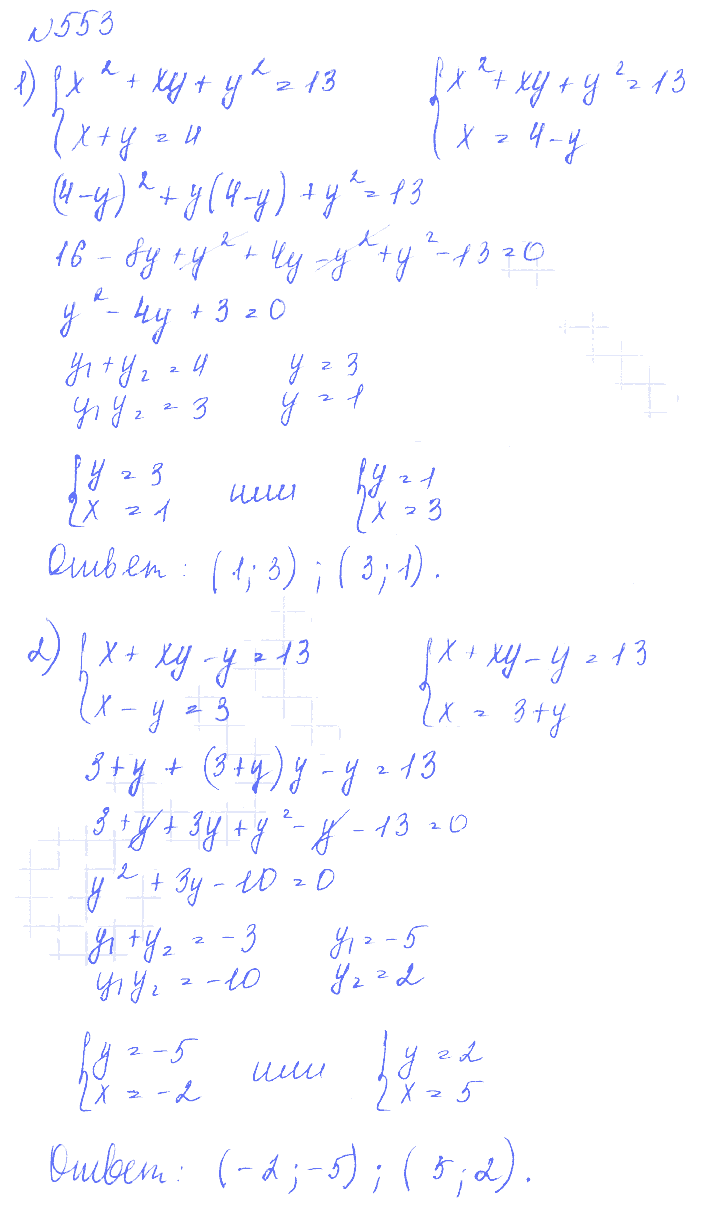 №553
1) { x² + xy + y² = 13 { x² + xy + y² = 13
x + y = 4 x = 4 - y
(4-y)² + y(4-y) + y² = 13
16 - 8y + y² + 4y - y² + y² - 13 = 0
y² - 4y + 3 = 0
y₁ + y₂ = 4 y = 3
y₁ y₂ = 3 y = 1
{ y = 3 или { y = 1
x = 1 x = 3
Ответ: (1; 3); (3; 1).
2) { x + xy - y = 13 { x + xy - y = 13
x - y = 3 x = 3 + y
3 + y + (3+y)y - y = 13
3 + y + 3y + y² - y - 13 = 0
y² + 3y - 10 = 0
y₁ + y₂ = -3 y₁ = -5
y₁ y₂ = -10 y₂ = 2
{ y = -5 или { y = 2
x = -2 x = 5
Ответ: (-2; -5); (5; 2).